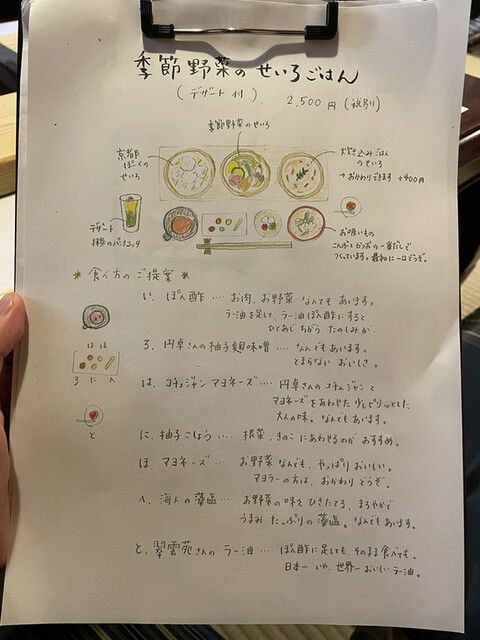 季節野菜のせいろごはん
(デザート付) 2,500円(税別)
季節野菜のせいろ
京都ぽーくの
せいろ
炊き込みごはん
のせいろ
→おかわりできます +400円
デザート
のパンナコッタ
お吸いもの
こんぶとかつおの一番だしで
つくっています。最初に一口どうぞ。
*食べ方のご提案*
い、ぽん酢…お肉、お野菜なんでもあいます。
ラー油を足して、ラー油ぽん酢にすると
ひとあじちがうたのしみが。
はほ
ろにへ
ろ、円卓さんの柚子麹味噌…なんでもあいます。
とまらないおいしさ。
は、コチュジャンマヨネーズ…円卓さんのコチュジャンと
マヨネーズをあわせた少しピリッとした
大人の味。なんでもあいます。
と
に、柚子こしょう…根菜、きのこにあわせるのがおすすめ。
ほ、マヨネーズ…お野菜なんでも、やっぱりおいしい。
マヨラーの方は、おかわりどうぞ。
へ、海人の藻塩…お野菜の味をひきたてる、まろやかで
うまみたっぷりの藻塩。なんでもあいます。
と、翠雲苑さんのラー油…ぽん酢に足しても、そのまま食べても。
日本一いや、世界一おいしいラー油。